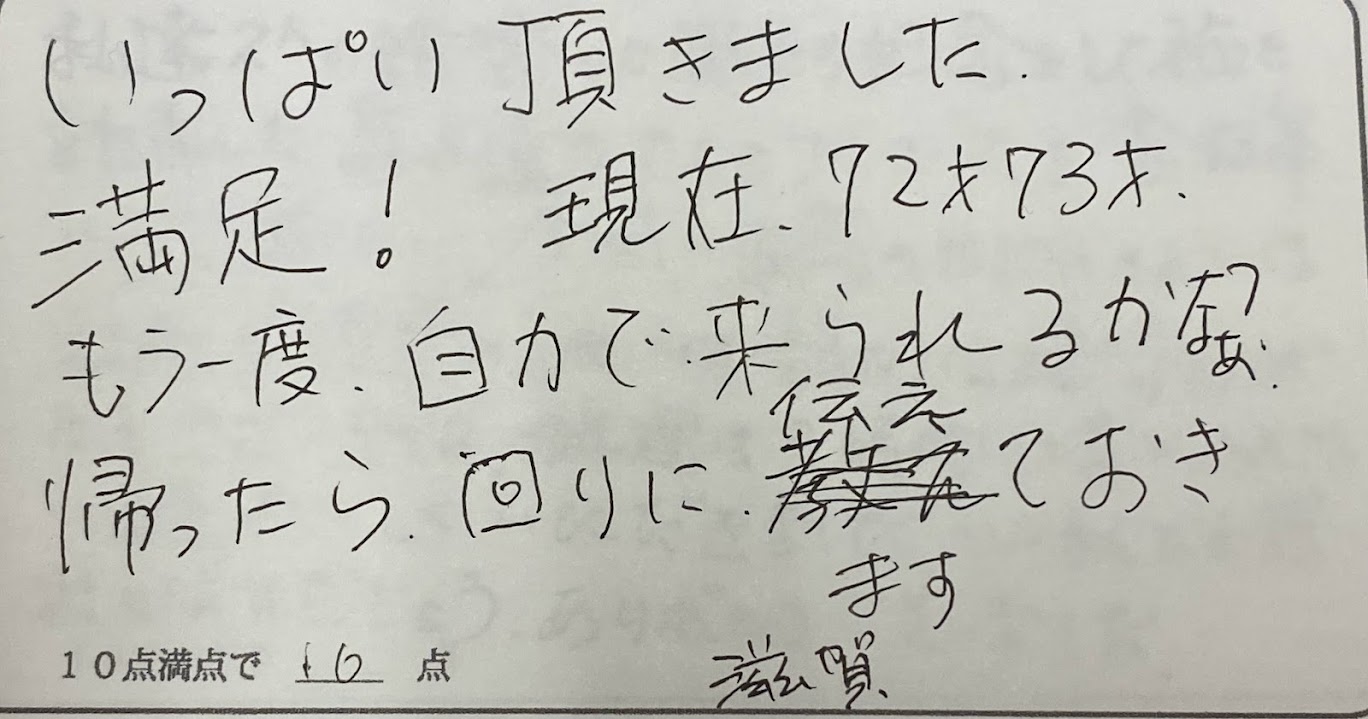 いっぱい頂きました.
満足! 現在、72才73才、
もう一度、自力で来られるかなぁ?
帰ったら、回りに、伝えておき
ます
10点満点で 10 点
滋賀